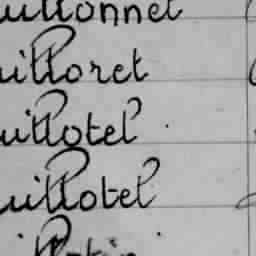 uillonnet
uilloret
uillotel
uillotel